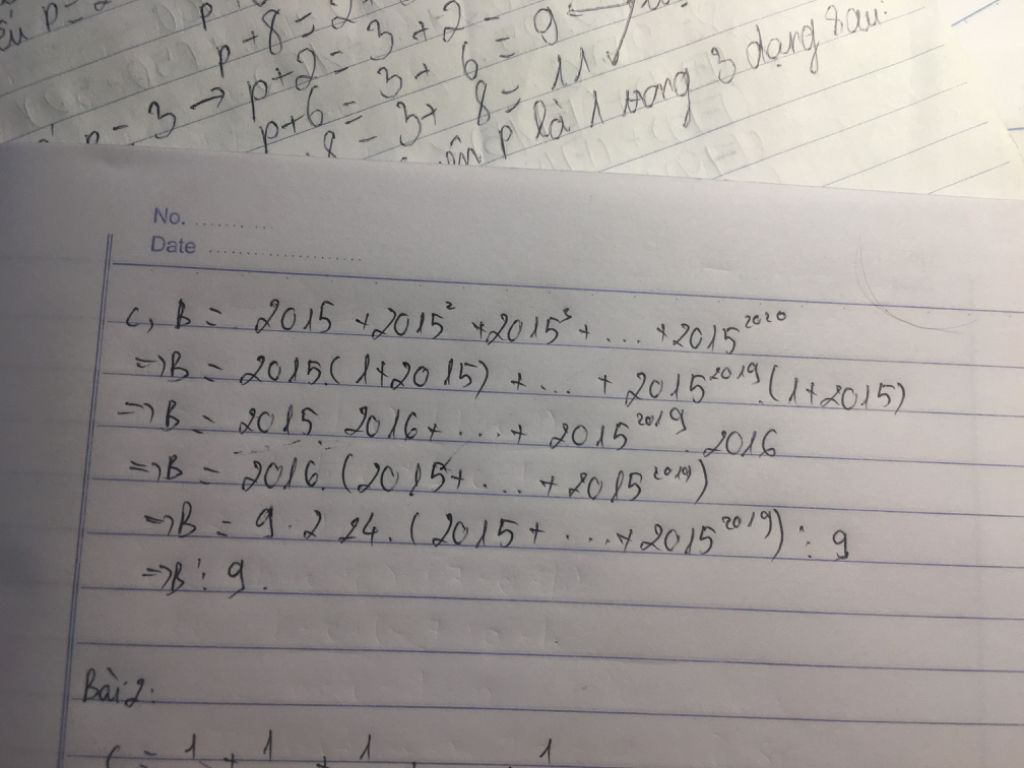 p+8=2+
p+2=3+2=9
p=3→p+6=3+6=9
8=3+8=11
p là 1 trong 3 dạng sau:
No. ............
Date .......................
c, B = 2015 + 2015² + 2015³ + ... + 2015²⁰²⁰
=> B = 2015.(1+2015) + ... + 2015²⁰¹⁹.(1+2015)
=> B = 2015. 2016 + ... + 2015²⁰¹⁹. 2016
=> B = 2016.(2015+ ... + 2015²⁰¹⁹)
=> B = 9.224.(2015+ ... + 2015²⁰¹⁹) ⋮ 9
=> B ⋮ 9.
Bài 2: